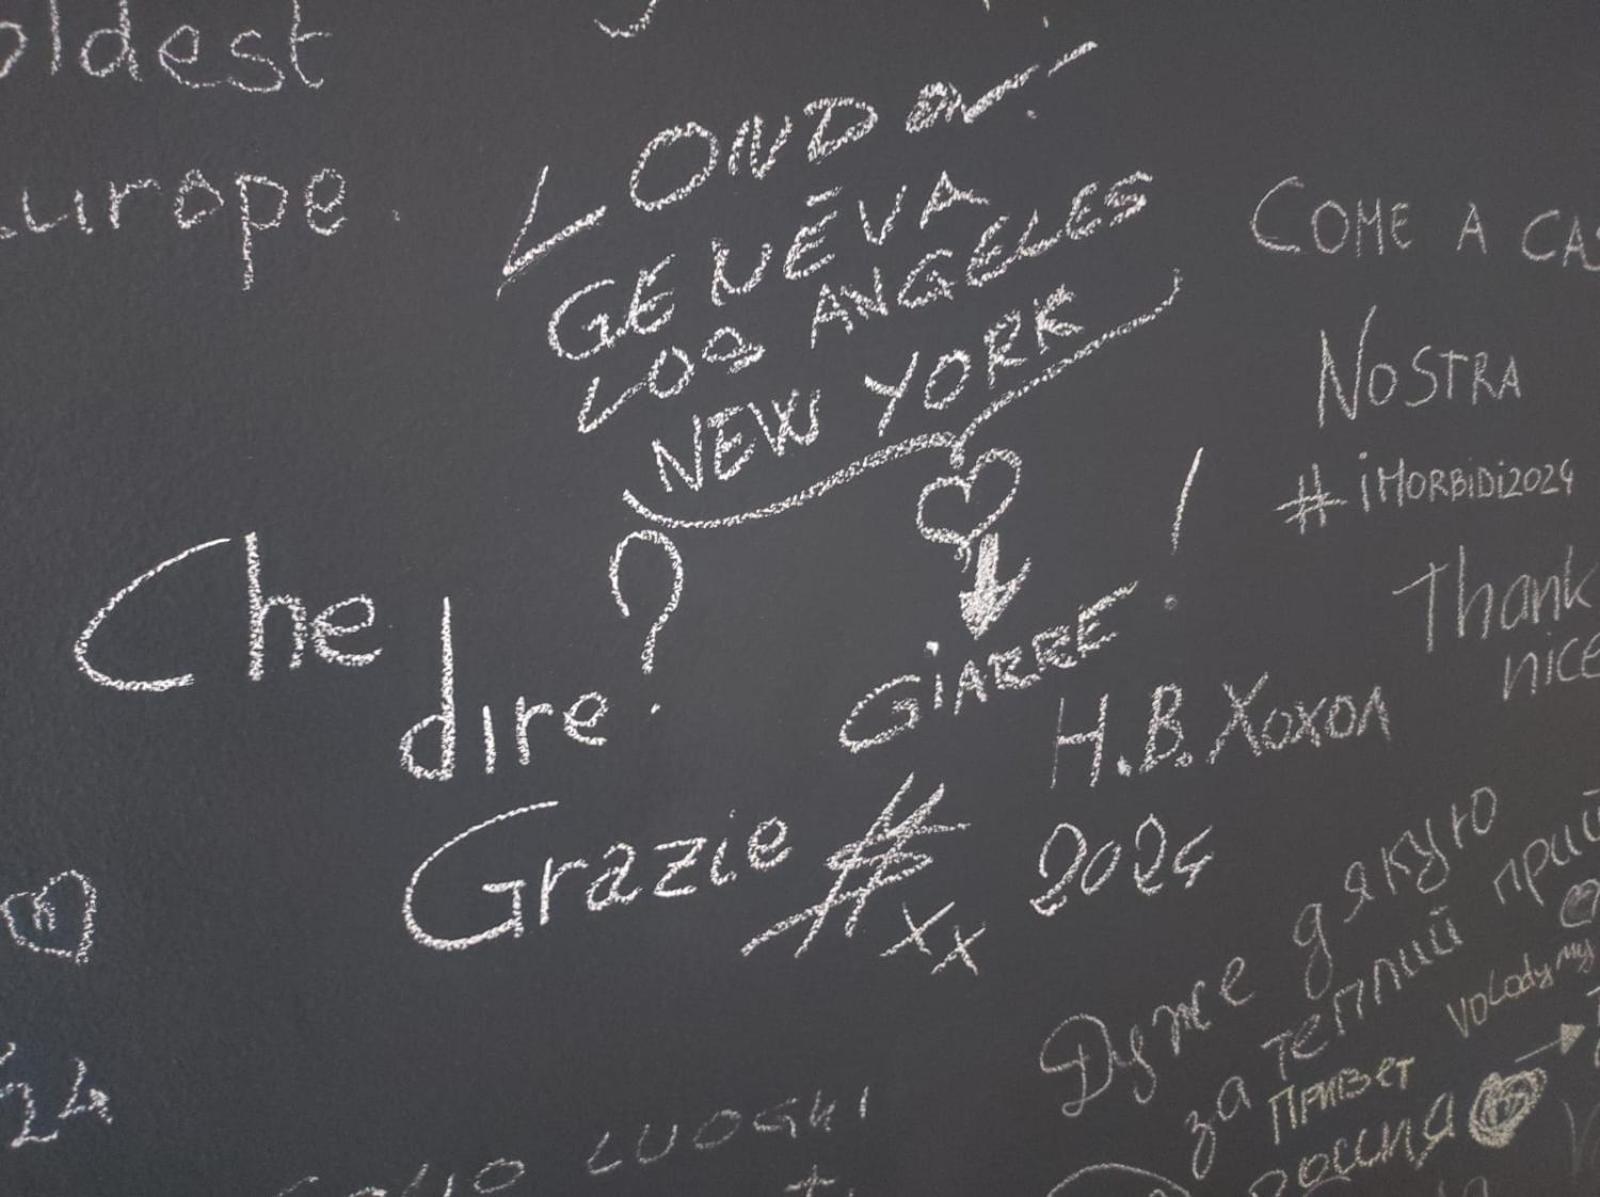 oldest
Europe.
LONDON
GENÈVA
LOS ANGELES
NEW YORK
GiARRE!
Che
dire?
Grazie
xx
COME A CAS
NOSTRA
#iMORBiDi2024
Thank
nice
Н.В.Хохол
2024
Дуже дякую
за теплий прий
Volodymy
Привет
Россия
24
LUOGHI